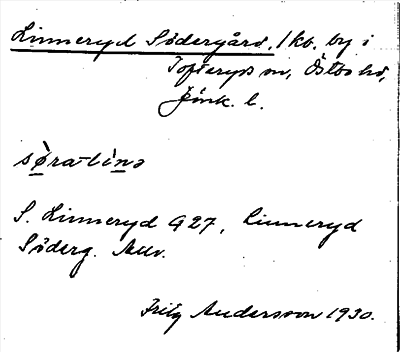 Linneryd Södergård, 1 kb. by i
Tofteryds sn, Östbo hd,
Jönk. l.
sø̀ra-lìnə
S. Linneryd G 27, Linneryd
Söderg.
Fritz Andersson 1930.